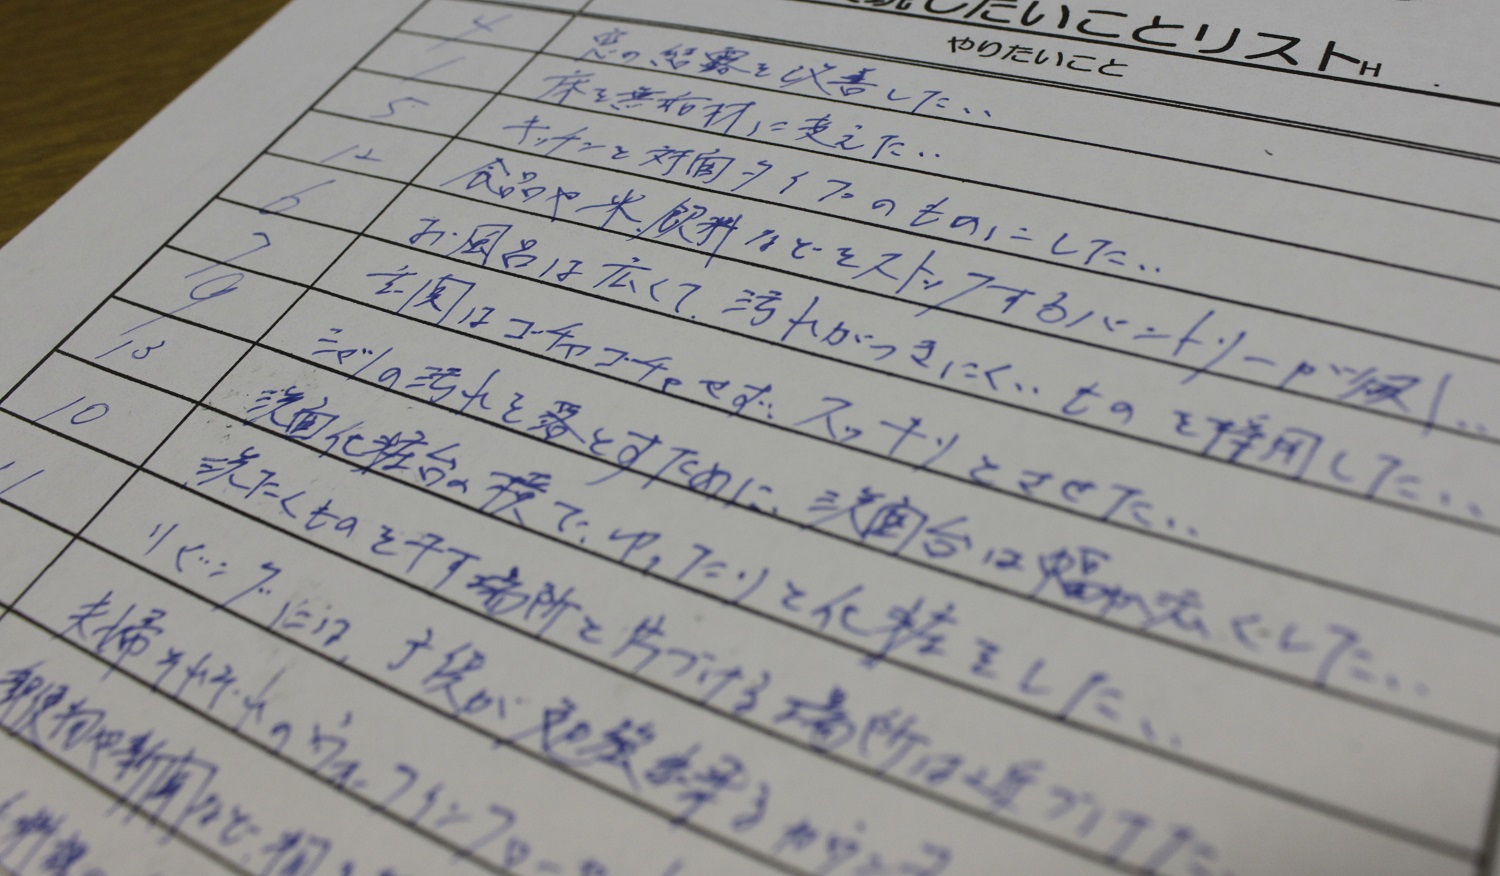 したいことリストH
やりたいこと
4 窓の結露を改善したい
1 床を無垢材に変えたい
5 キッチンを対面タイプのものにしたい
12 食品や米、飲料などをストックするパントリーが欲し
6 お風呂は広くて、汚れがつきにくいものを採用したい
7 玄関はゴチャゴチャせず、スッキリとさせたい
9 ミツの汚れを落とすために、洗面台は幅が広くしたい
13 洗面化粧台の横で、ゆったりと化粧をしたい
10 洗たくものを干す場所と片づける場所は近づけたい
11 リビングには、子供が勉強出来るカウンタ
夫婦それぞれのウォークインクローゼット
や新聞など